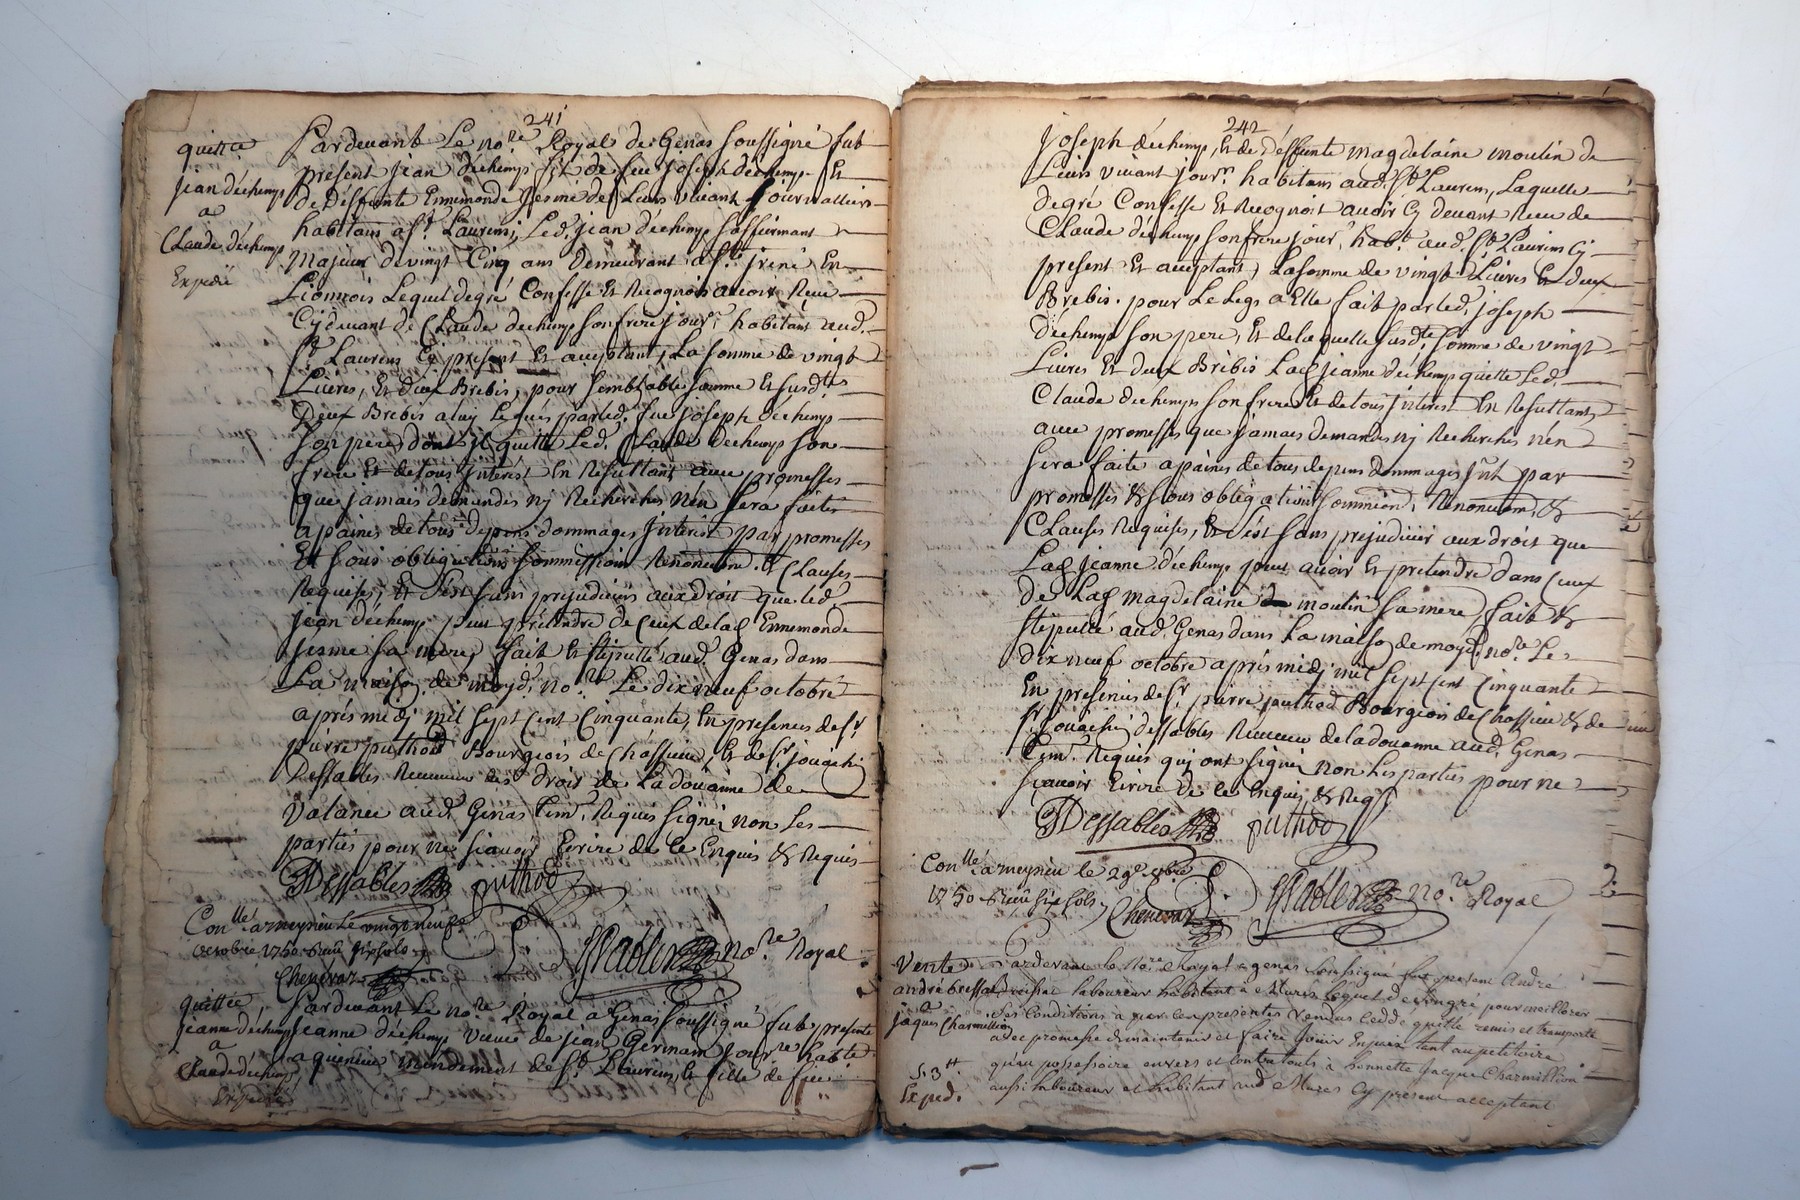 241
quittce
jean déchemp
a
Claude déchemp
Expedié
Pardevant Le no.re Royal de Genas soussigné fut
present jean déchemp fils de feu Joseph déchemp Et
de Deffunte Ennemonde Jesme de Leurs vivant journalliers
habitans a S.t Laurens, Led. jean déchemp saffirmant
Majeur de vingt Cinq ans Demeurant a S.t jriné En
Lionnois Lequel degré Confesse Et Recognoit avoir Receu
Cy devant de Claude dechemp son frere jour.r habitant aud.
S.t Laurens Cy present Et acceptant, La somme de vingt
Livres, Et deux Brebis, pour semblable somme Et susd.tes
Deux Brebis a luy Legués par led. feu joseph déchemp
son pere, dont jl quitte Led. Claude dechemp son
frere Et de tous jnterest En Resultant, avec promesses
que jamais demandes nj Recherches n'en sera faites
a paines de tous depens dommages jnterest par promesses
Et sous obligation soummission Renoncion. Et Clauses
Requises, Et s'est sans prejudicier aux droit que led.
jean déchemp peut prétendre de Ceux de lad. Ennemonde
Jesme sa mere, fait Et stipullé aud. Genas dans
La maison de moyd. no.re Le dix neuf octobre
aprés midj mil sept Cent Cinquante, En presences de S.r
pierre puthod Bourgeois de Chassieu, Et de S.r jouachi
Dessables Receveur des droit de La doüanne de
Valance aud. Genas tem. Requis signés non Les
parties pour ne sçavoir Ecrire de Ce Enquis & Requis
Dessables puthod
Con.llé a meyzieu Le vingt neuf
octobre 1750 Receu six sols
Chenevaz
no.re Royal
quittce
jeanne déchemp
a
Claude déchemp
Expedié
Pardevant Le no.re Royal a Genas soussigné fut presente
jeanne déchemp veuve de jean Germain jour.re hab.te
a quenieu mandement de S.t Laurens, Et fille de feu
242
joseph déchemp, Et de deffunte magdelaine moulin de
Leurs vivant jour.rs habitans aud. S.t Laurens, Laquelle
degré Confesse Et Recognoit avoir Cy devant Receu de
Claude déchemp son frere jour.r hab.t aud. S.t Laurens Cy
present Et acceptant, La somme de vingt Livres Et deux
Brebis. pour Le Legs a Elle fait par led. joseph
Déchemp son pere, Et de laquelle susd.te somme de vingt
Livres Et deux Brebis Lad. jeanne déchemp quitte Led.
Claude déchemp son frere Et de tous jnterest En Resultant,
avec promesses que jamais demandes nj Recherches n'en
sera faite a paines de tous depens dommages jnt. par
promesses & sous obligation soummion, Renoncion &
Clauses Requises, Et s'est sans prejudicier aux droit que
Lad. jeanne déchemp peut avoir Et pretendre dans Ceux
de Lad. magdelaine moulin sa mere, fait &
stipullé aud. Genas dans La maison de moyd. no.re Le
dix neuf octobre aprés midj mil sept Cent Cinquante
En presences de S.r pierre puthod Bourgeois de Chassieu & de
S.r jouachi dessables Receveur de la doüanne aud. Genas
tem. Requis quj ont signés non Les parties pour ne
sçavoir Ecrire de Ce Enquis & Req.s
Dessables puthod
Con.llé a meyzieu le 29.e 8bre
1750 Receu six sols
Chenevaz
no.re Royal
Vente
andré
a
jaques Charmillion
5. 3.tt
Exped.
Pardevant le No.re Royal a genas soussigné fut present André
laboureur habitant à Mures lequel de son gré pour meillorer
des Conditions à par Ces presentes vendus cedde quitte remis et transporte
avec promesse de maintenir et faire jouir tant au petitoire
qu'au possessoire envers et Contre touts à honnette jacque Charmillion
aussi laboureur et habitant aud Mures Cy present acceptant